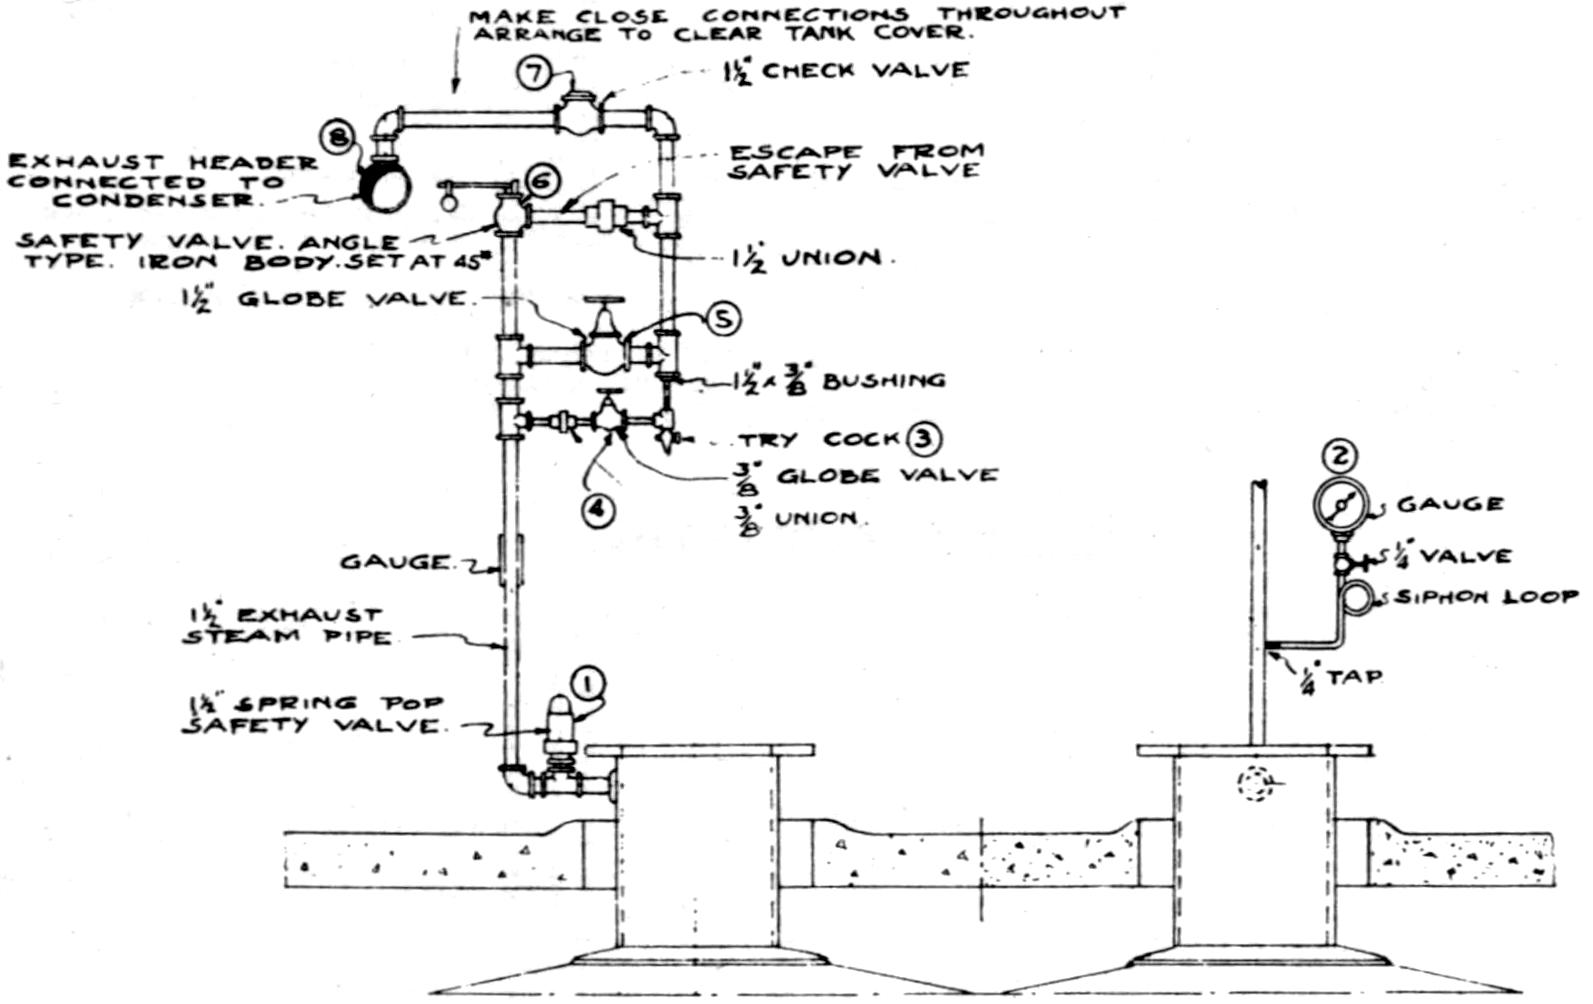 MAKE CLOSE CONNECTIONS THROUGHOUT
ARRANGE TO CLEAR TANK COVER.
7
1½" CHECK VALVE
8
EXHAUST HEADER
CONNECTED TO
CONDENSER.
ESCAPE FROM
SAFETY VALVE
6
SAFETY VALVE. ANGLE
TYPE. IRON BODY. SET AT 45#
1½" UNION.
1½" GLOBE VALVE.
5
1½" x ⅜" BUSHING
TRY COCK 3
⅜" GLOBE VALVE
⅜" UNION.
4
2
GAUGE
¼" VALVE
SIPHON LOOP
¼" TAP
GAUGE.
1½" EXHAUST
STEAM PIPE
1
1½" SPRING POP
SAFETY VALVE.